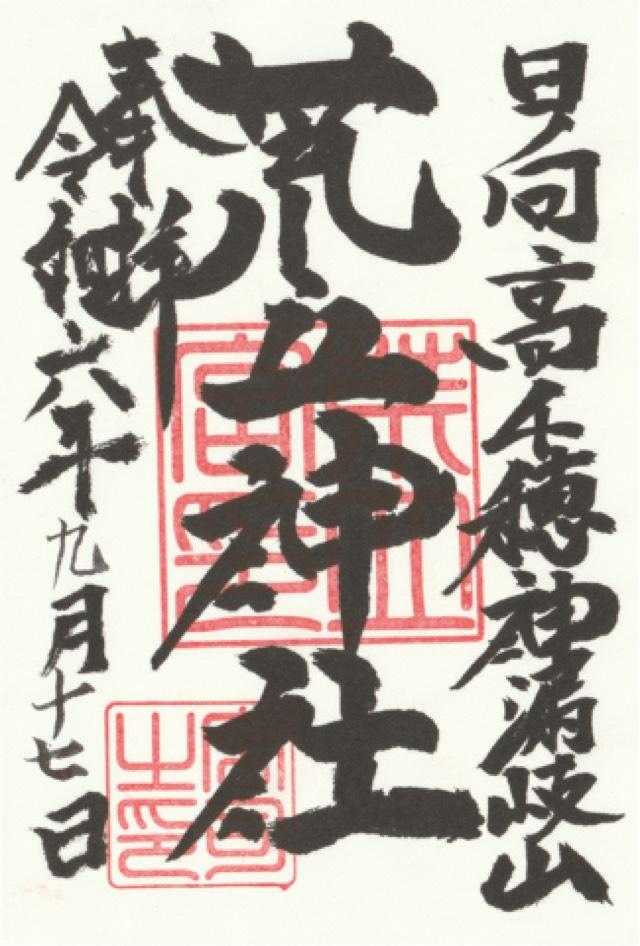 日向高千穂神漏岐山
荒立神社
奉拝
令和六年九月十七日
宮司
之印